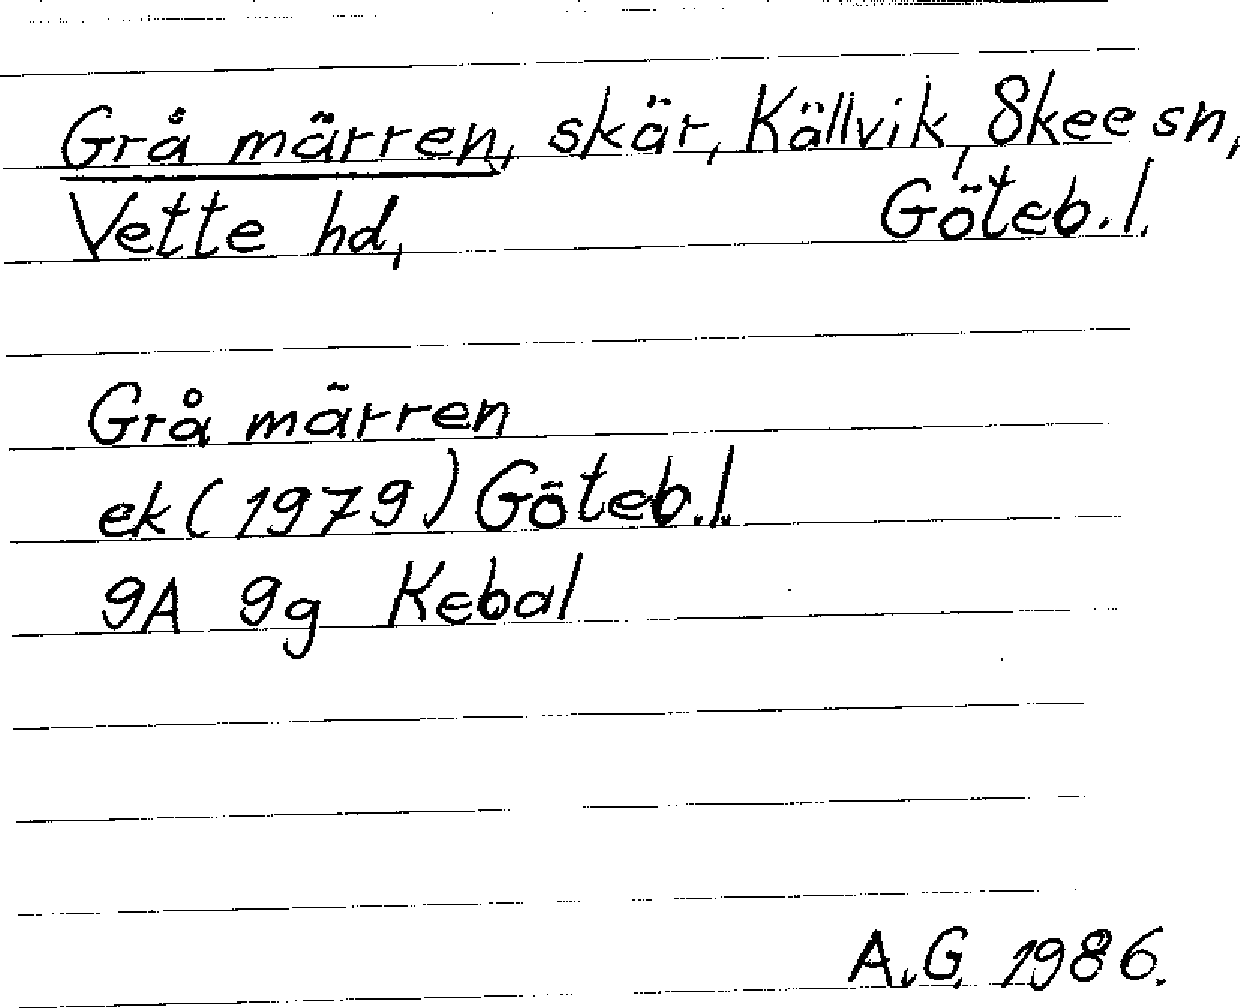 Grå märren, skär, Källvik, Skee sn,
Vette hd, Göteb. l.
Grå märren
ek (1979) Göteb. l.
9A 9g Kebal
A.G. 1986.